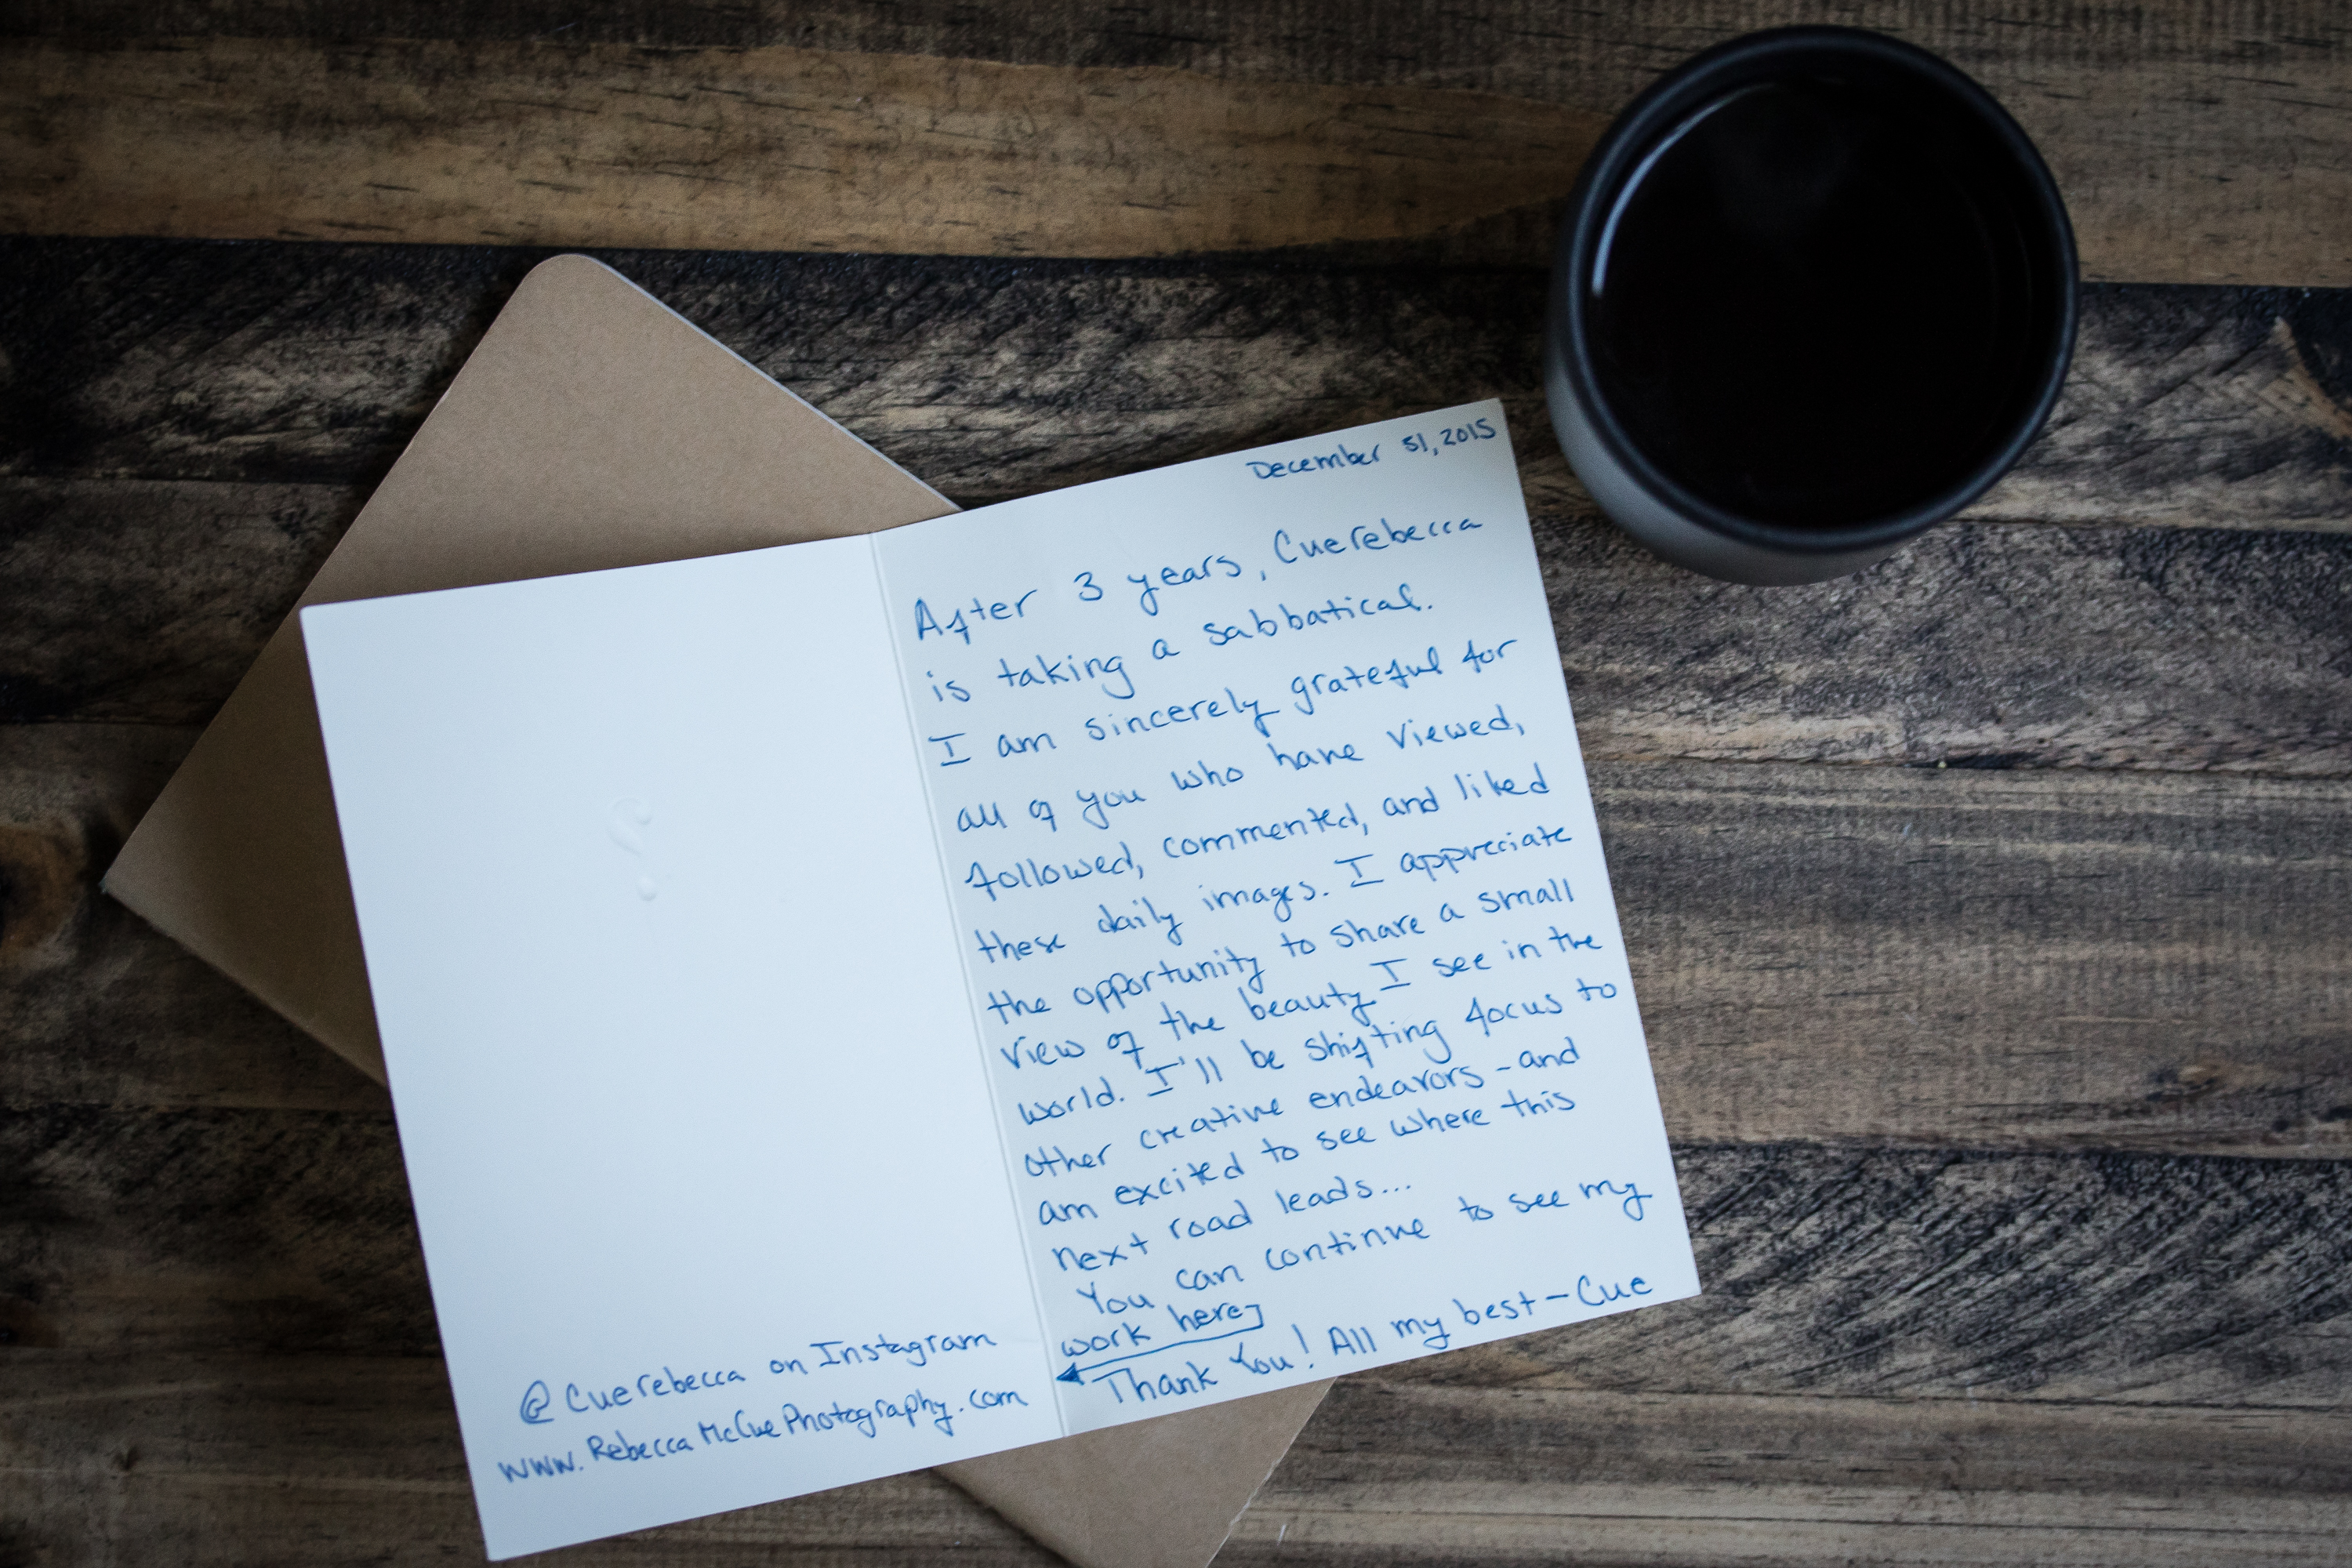 December 31, 2015
After 3 years, Cuerebecca
is taking a sabbatical.
I am sincerely grateful for
all of you who have viewed,
followed, commented, and liked
these daily images. I appreciate
the opportunity to share a small
view of the beauty I see in the
world. I'll be shifting focus to
other creative endeavors - and
am excited to see where this
next road leads...
You can continue to see my
work here
Thank You! All my best - Cue
@Cuerebecca on Instagram
www.RebeccaMcCuePhotography.com